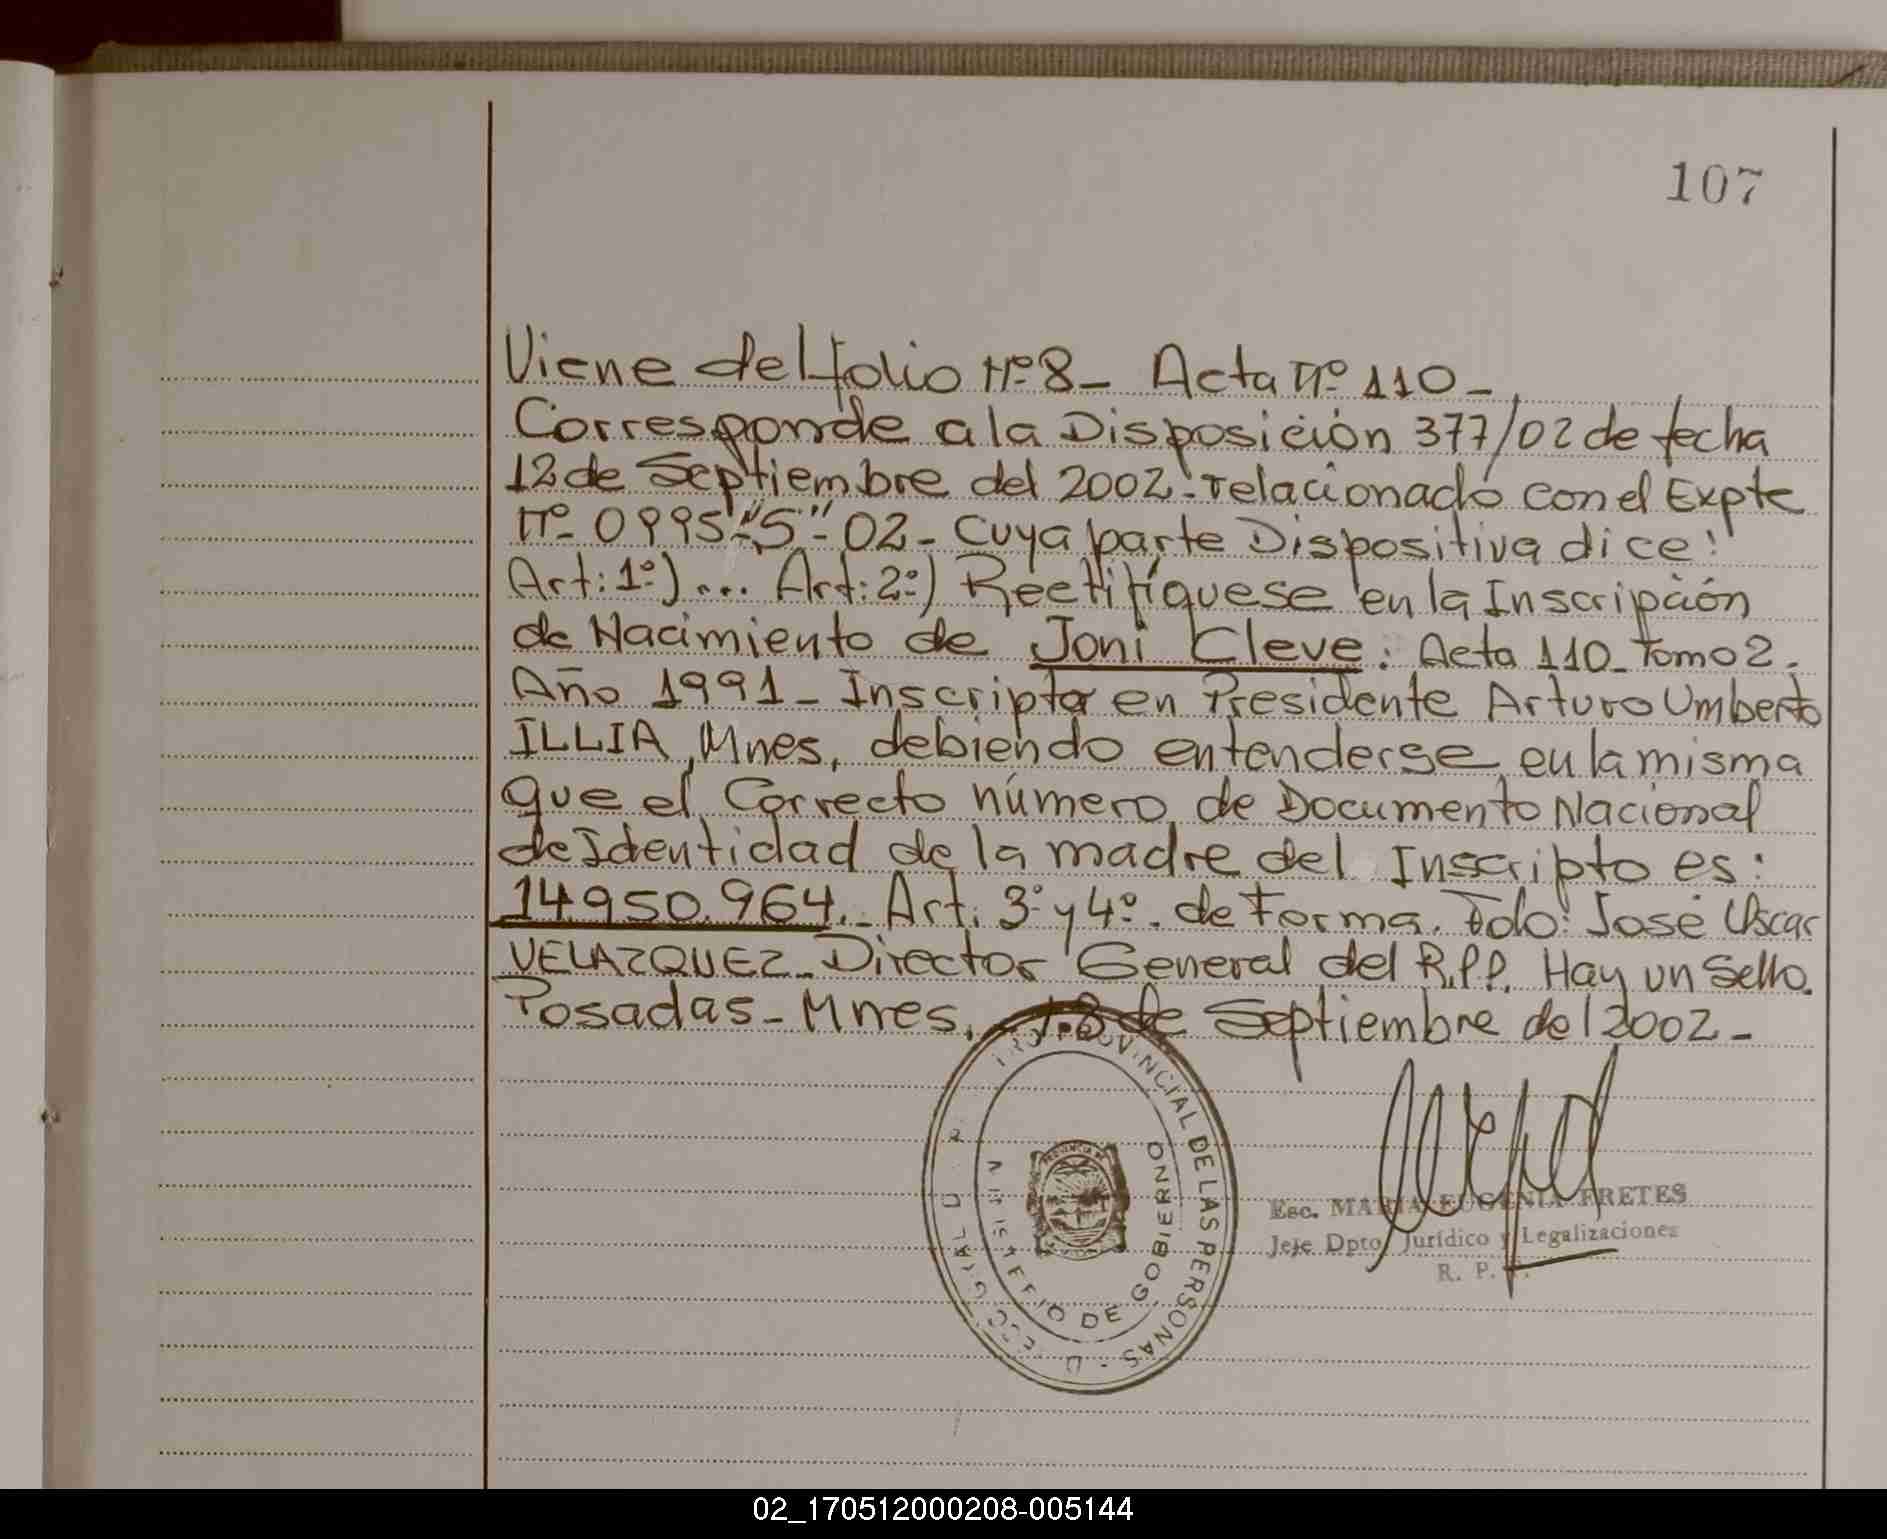 107
Viene del folio Nº 8- Acta Nº 110-
Corresponde a la Disposición 377/02 de fecha
12 de Septiembre del 2002- relacionado con el Expte
Nº- 0995-"S"- 02- Cuya parte Dispositiva dice:
Art: 1º) ... Art: 2º) Rectifíquese en la Inscripción
de Nacimiento de Joni Cleve: Acta 110- Tomo 2-
Año 1991- Inscripta en Presidente Arturo Umberto
ILLIA, Mnes, debiendo entenderse en la misma
que el Correcto número de Documento Nacional
de Identidad de la madre del Inscripto es:
14.950.964.- Art. 3º y 4º. de Forma. Fdo: José Oscar
VELAZQUEZ- Director General del R.P.P. Hay un Sello.
Posadas- Mnes, 18 de Septiembre del 2002-
PROVINCIAL DE LAS PERSONAS
MINISTERIO DE GOBIERNO
Esc. MARIA EUGENIA FRETES
Jefe Dpto. Jurídico y Legalizaciones
R. P. P.
02_170512000208-005144